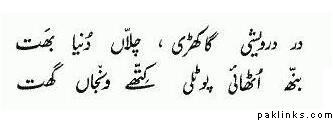 در درویشی گاکھڑی ، چلّاں دُنیا بھَت
بنّھ اُٹھائی پوٹلی کِتھّے ونجّاں گھت
paklinks.com